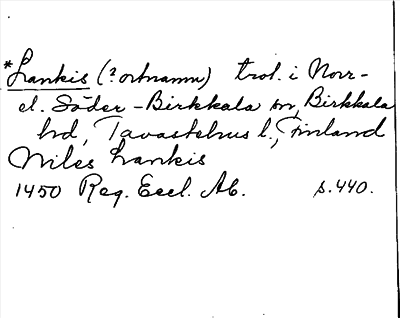 *Lankis (? ortnamn) trol. i Norr-
el. Söder-Birkkala sn, Birkkala
hd, Tavastehus l., Finland
Niles Lankis
1450 Reg. Eccl. Ab. s. 440.